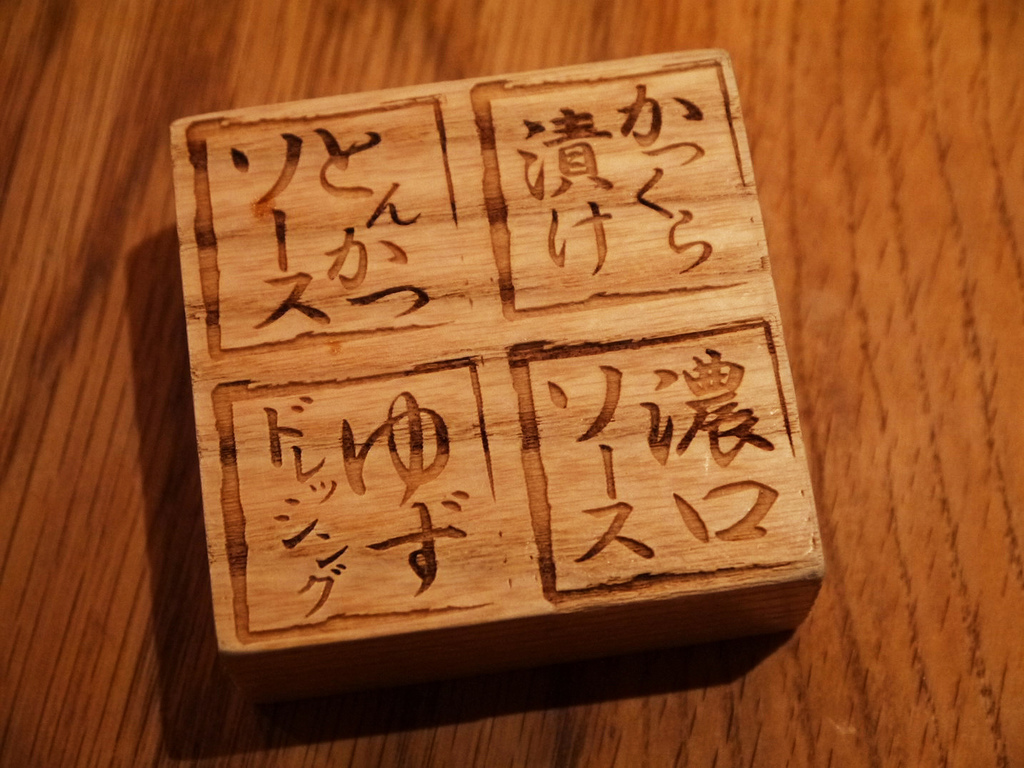 かつくら
漬け
とんかつ
ソース
濃口
ソース
ゆず
ドレッシング